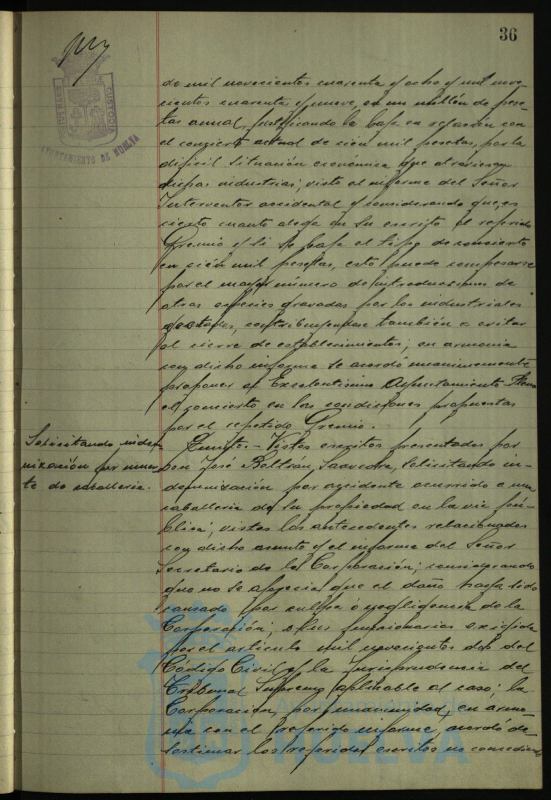 36
AYUNTAMIENTO DE HUELVA
CUSTODIA
de mil novecientos cuarenta y ocho y mil nove-
cientos cuarenta y nueve, en un millón de pese-
tas anual, justificando la baja en relación con
el concierto actual de cien mil pesetas, por la
difícil situación económica que atraviesan
dichas industrias; visto el informe del Señor
Interventor accidental y considerando que es
cierto cuanto alega en su escrito el referido
Gremio y si se baja el tipo de concierto
en cien mil pesetas, esto puede compensarse
por el mayor número de introducciones de
otras especies gravadas por los industriales
afectados, contribuyendose también a evitar
el cierre de establecimientos; en armonia
con dicho informe se acordó unanimemente
proponer al Excelentísimo Ayuntamiento Pleno
el concierto en las condiciones propuestas
por el repetido Gremio.
Solicitando indem-
nización por muer-
te de caballeria.
Quinto.- Vistos escritos presentados por
Don José Beltrán Saavedra, solicitando in-
demnización por accidente ocurrido a una
caballeria de su propiedad en la via pú-
blica; vistos los antecedentes relacionados
con dicho asunto y el informe del Señor
Secretario de la Corporación; considerando
que no se aprecia que el daño haya sido
causado por culpa o negligencia de la
Corporación, o sus funcionarios exigida
por el artículo mil novecientos dos del
Código Civil y la Jurisprudencia del
Tribunal Supremo aplicable al caso; la
Corporación, por unanimidad, en armo-
nia con el referido informe, acordó de-
sestimar los referidos escritos no concediendo
HUELVA